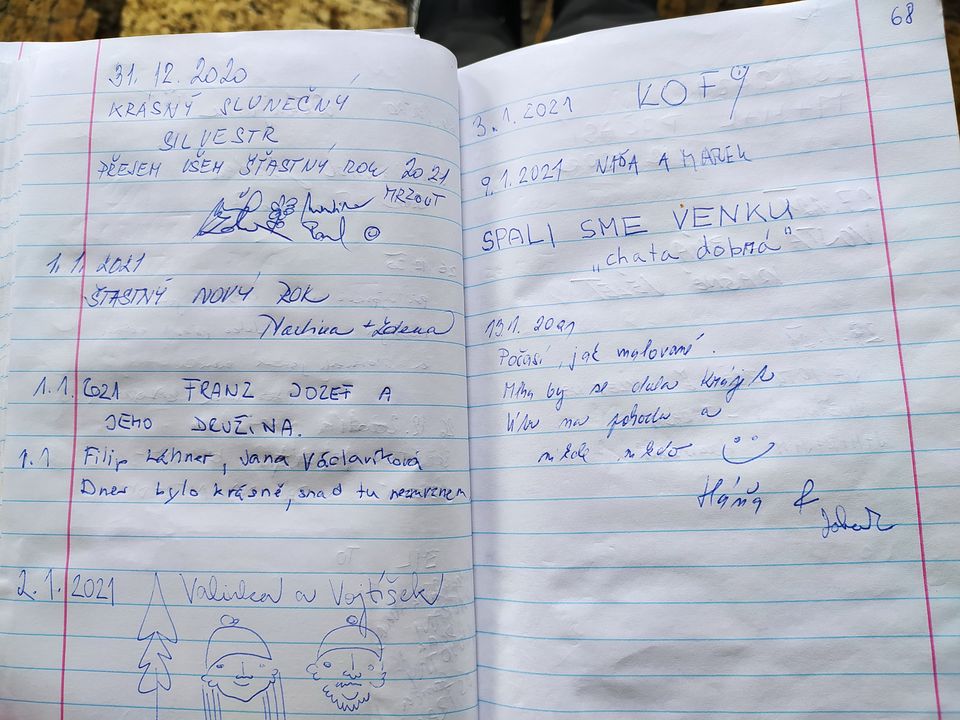 31. 12. 2020
KRÁSNÝ SLUNEČNÝ
SILVESTR
PŘEJEM VŠEM ŠŤASTNÝ ROK 2021
MRZOUT
1. 1. 2021
ŠŤASTNÝ NOVÝ ROK
Martina + Zdena
1. 1. 2021 FRANZ JOZEF A
JEHO DRUŽINA.
1. 1 Filip Lähner, Jana Václavíková
Dnes bylo krásně, snad tu nezmrznem
2. 1. 2021 Valinka a Vojtíšek
68
3. 1. 2021 KOFY
9. 1. 2021 NAĎA A MAREK
SPALI SME VENKU
„chata dobrá"
13. 1. 2021
Počasí, jak malované.
Mlha by se dala krájet
klid na pohodu a
nikde nikdo
Háňa &